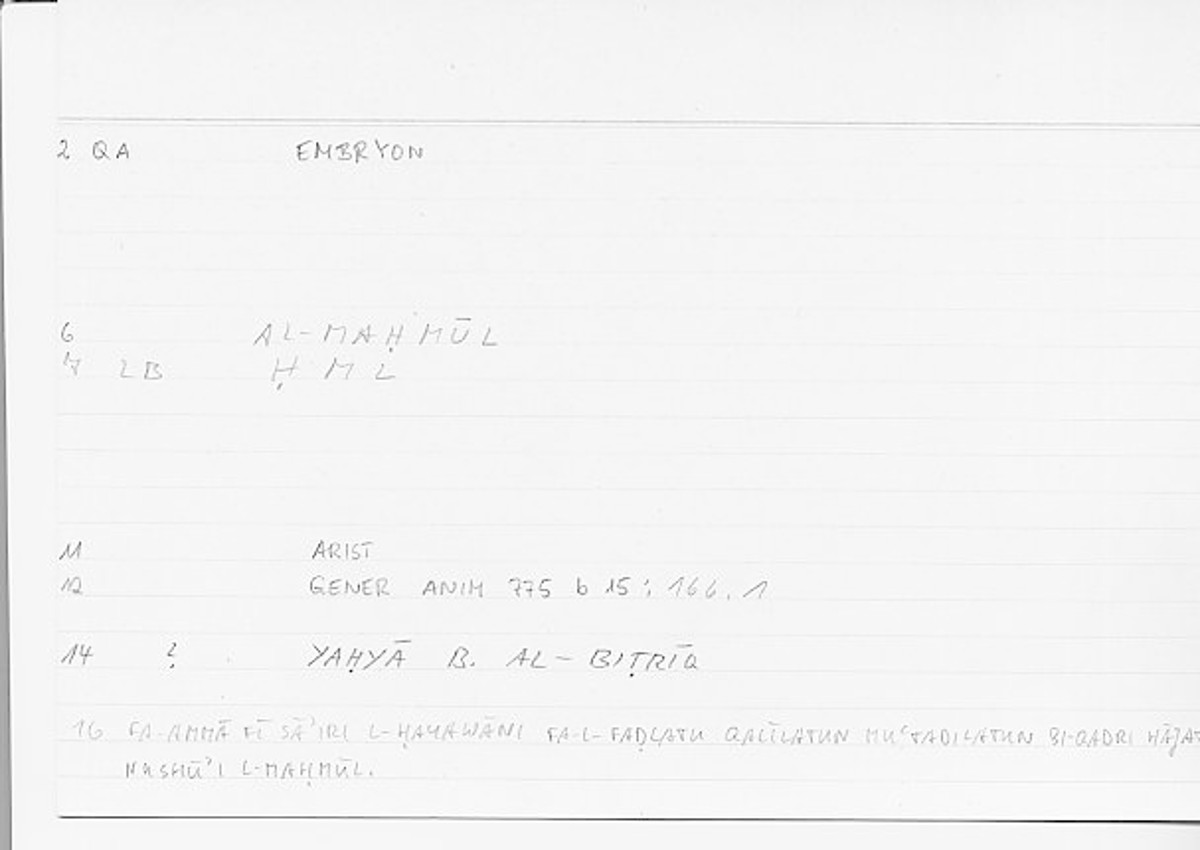 2 QA EMBRYON
6 AL-MAḤMŪL
7 LB Ḥ M L
11 ARIST
12 GENER ANIM 775 b 15 ; 166, 1
14 ? YAḤYĀ B. AL-BIṬRĪQ
16 FA-AMMĀ FĪ SĀʾIRI L-ḤAYAWĀNI FA-L-FAḌLATU QALĪLATUN MUʿTADILATUN BI-QADRI ḤĀǦAT
NUSHŪʾI L-MAḤMŪL.